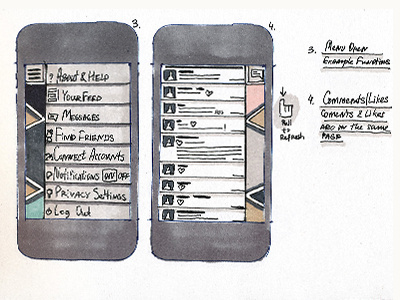 3.
? About & Help
Your Feed
Messages
Find Friends
Connect Accounts
Notifications ON OFF
Privacy Settings
Log Out
4.
Pull
to
Refresh
3. Menu Open
Example Functions
4. Comments/Likes
Coments & Likes
are on the same
page